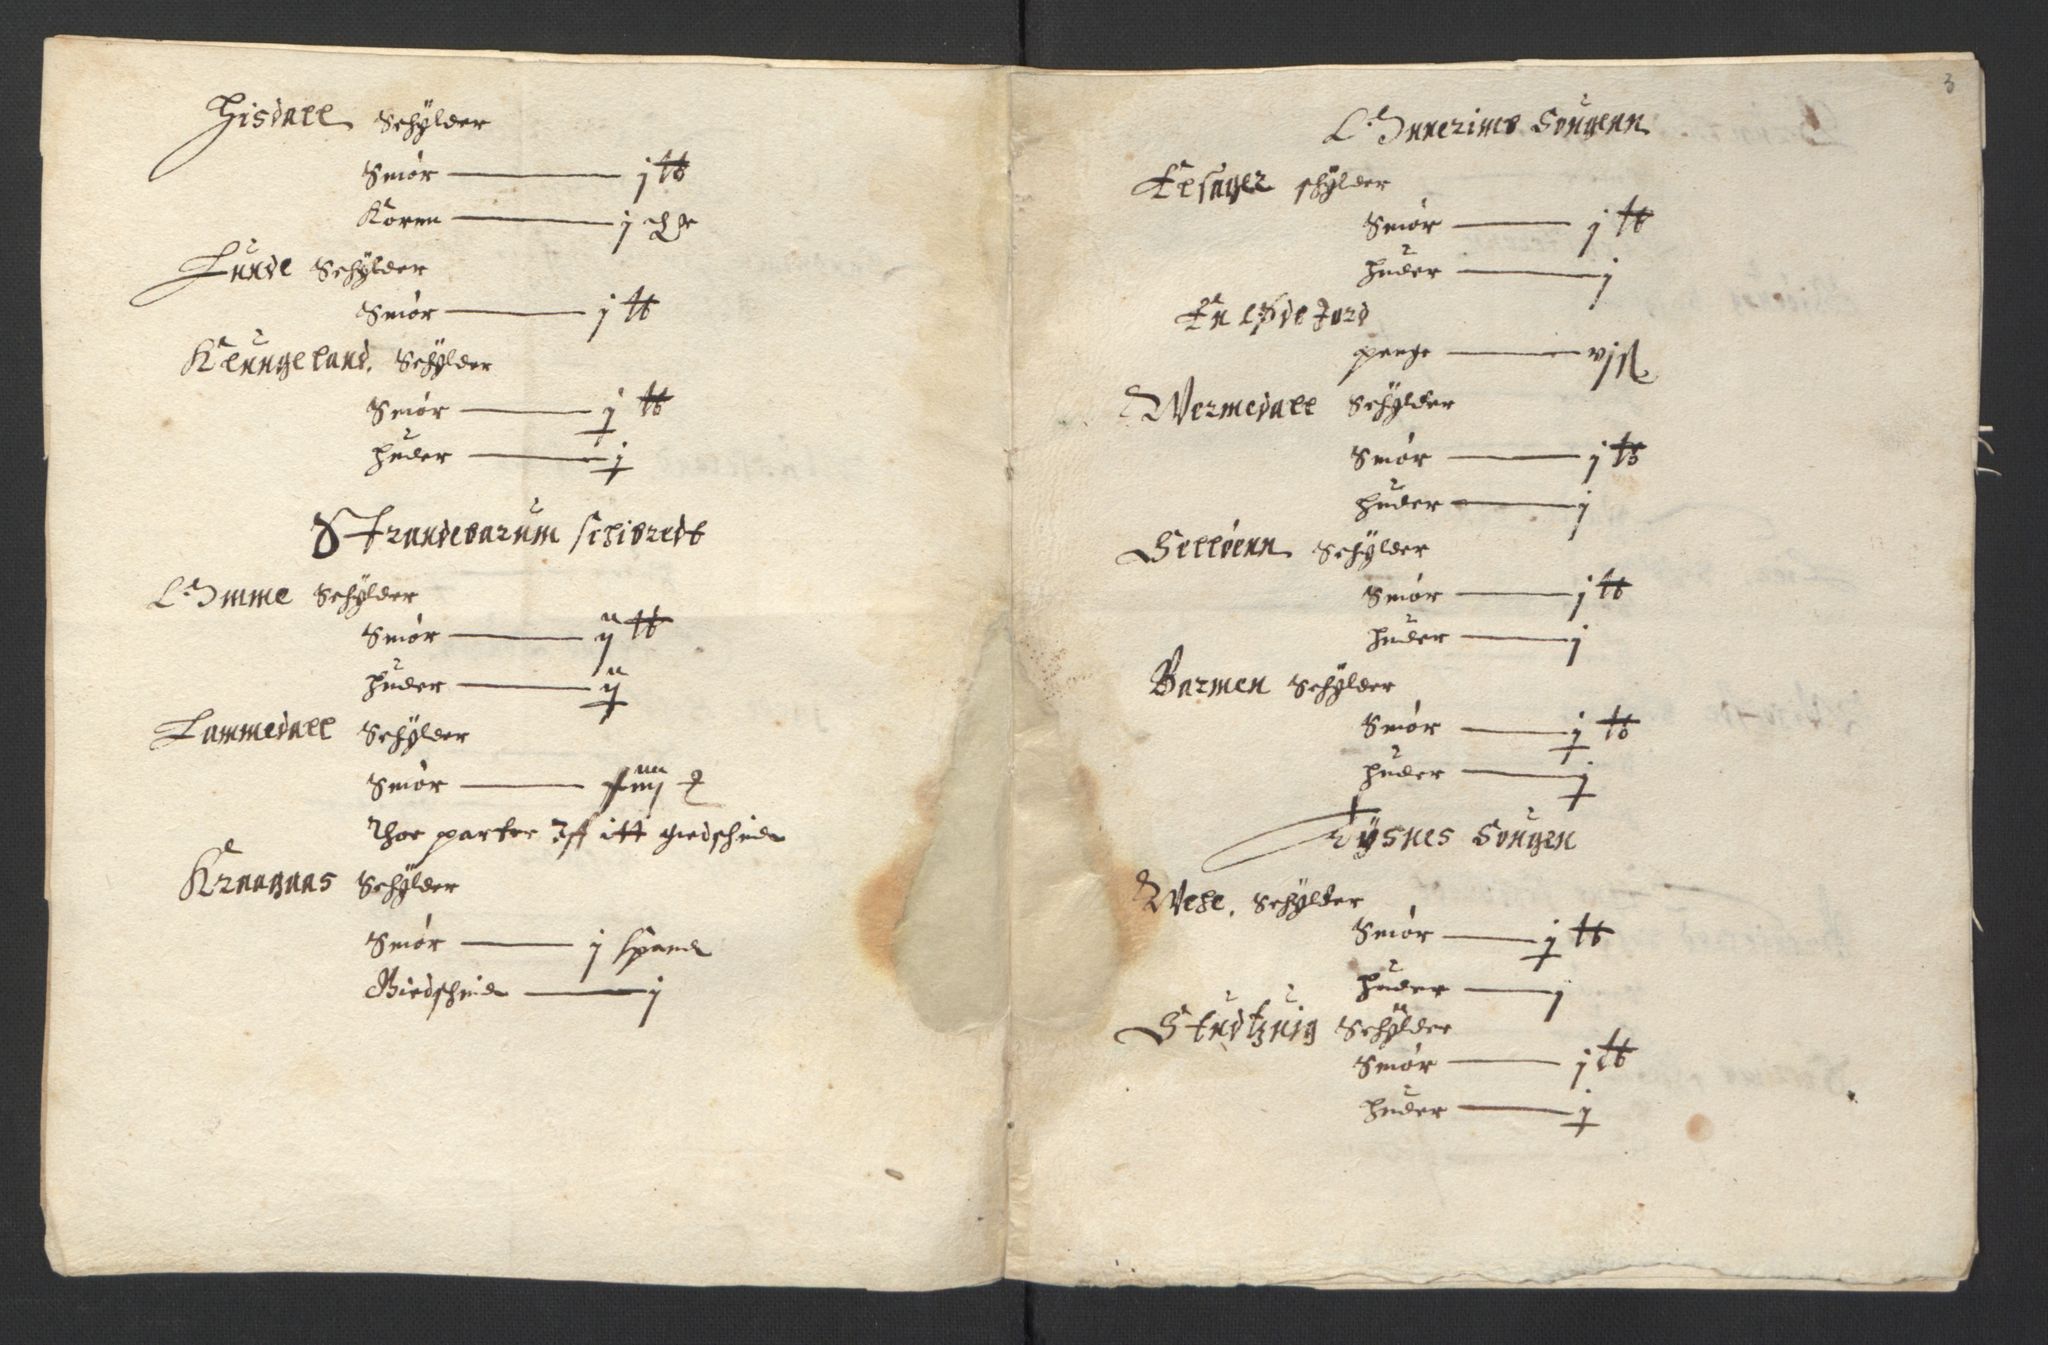 Hisdall Schÿlder
Smør j ℔
Korn j
Lunde Schÿlder
Smør j ℔
Klungeland. Schÿlder
Smør j ℔
huder j
Strandebarum schibredt
Omme Schÿlder
Smør ij ℔
huder ij
Tammedall Schÿlder
Smør
Thoe parter Aff itt giedschind
Kraaguas Schÿlder
Smør j spand
Giedschind j
3
Onnerims Sougenn
Elsager schÿlder
Smør j ℔
huder j
En Øde Jord
penge vj ß
Wermedall Schÿlder
Smør j ℔
huder j
Selløenn Schÿlder
Smør j ℔
huder j
Barmen Schÿlder
Smør j ℔
huder j
Tÿsnes Sougen
Wehe. Schÿlder
Smør j ℔
huder j
Schÿlder
Smør j ℔
huder j